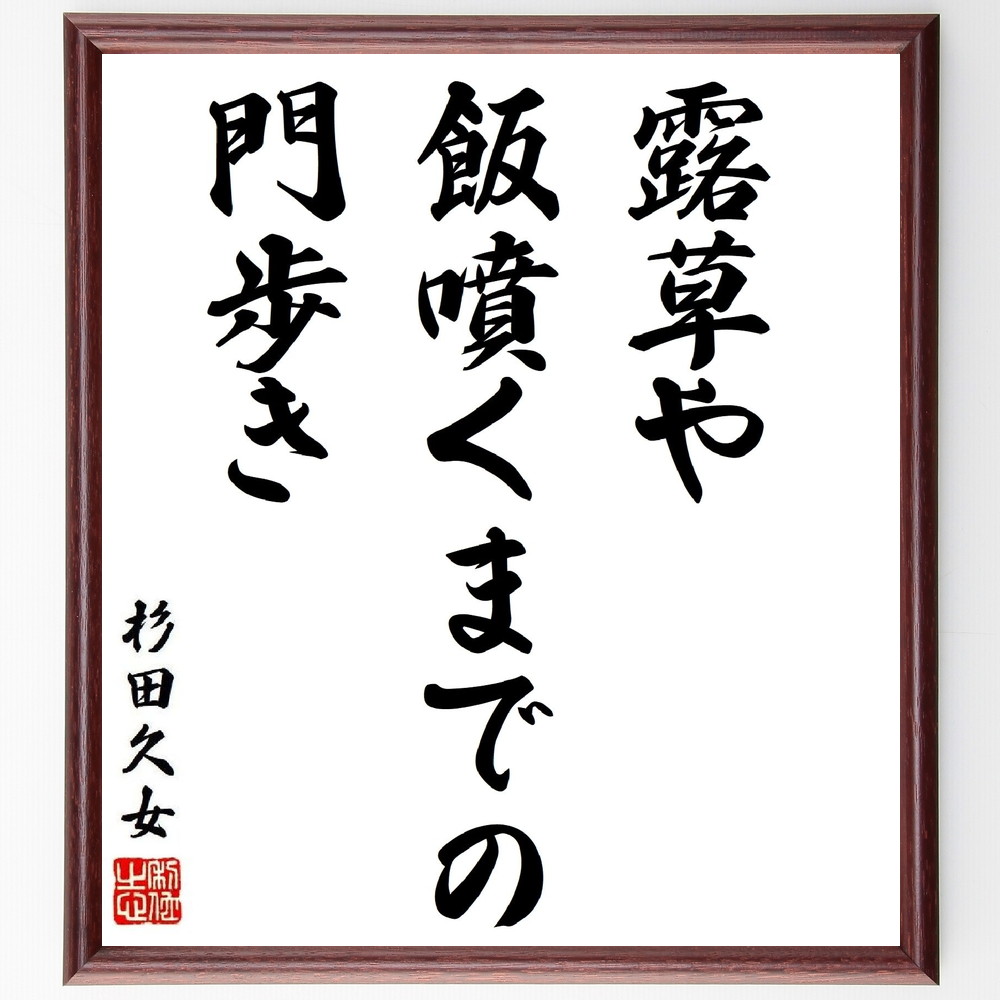 露草や
飯噴くまでの
門歩き
杉田久女